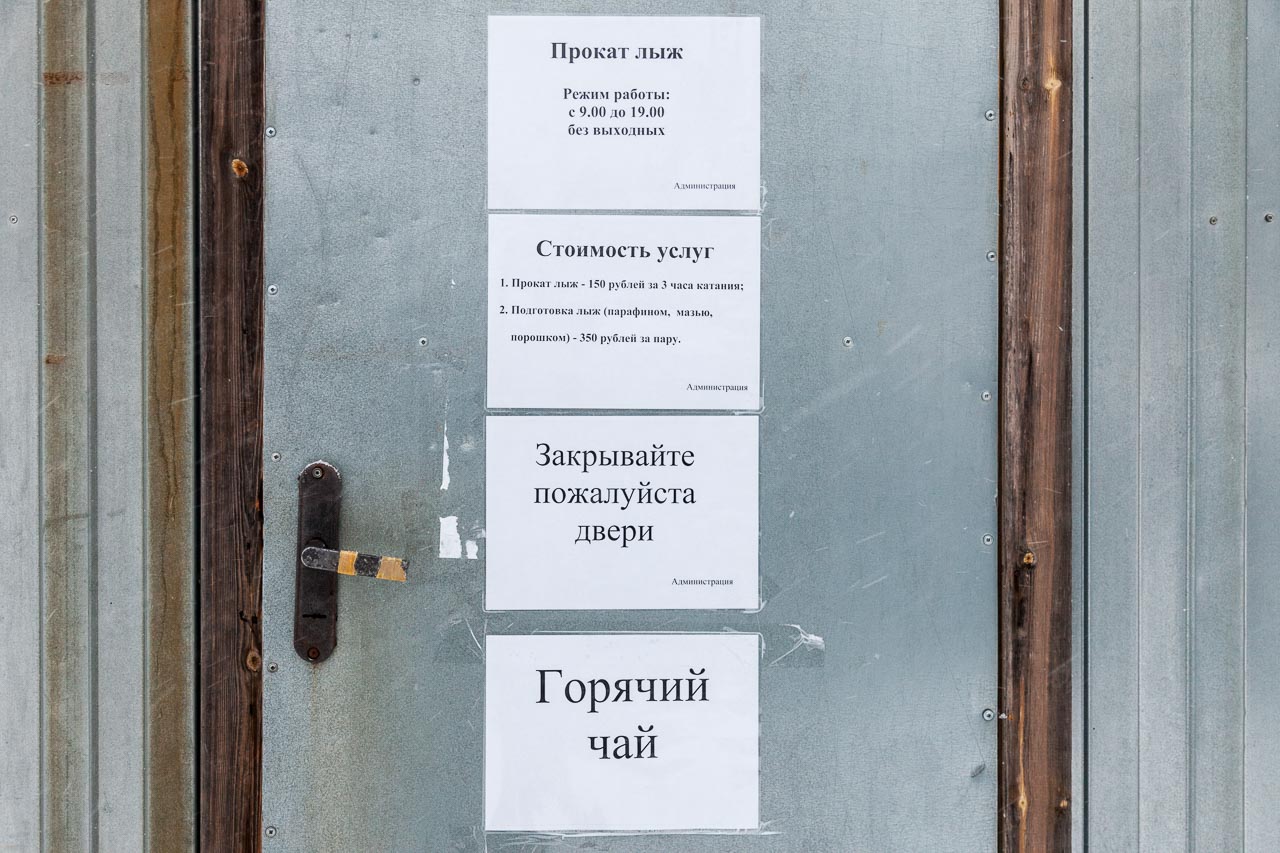 Прокат лыж
Режим работы:
с 9.00 до 19.00
без выходных
Администрация
Стоимость услуг
1. Прокат лыж - 150 рублей за 3 часа катания;
2. Подготовка лыж (парафином, мазью,
порошком) - 350 рублей за пару.
Администрация
Закрывайте
пожалуйста
двери
Администрация
Горячий
чай